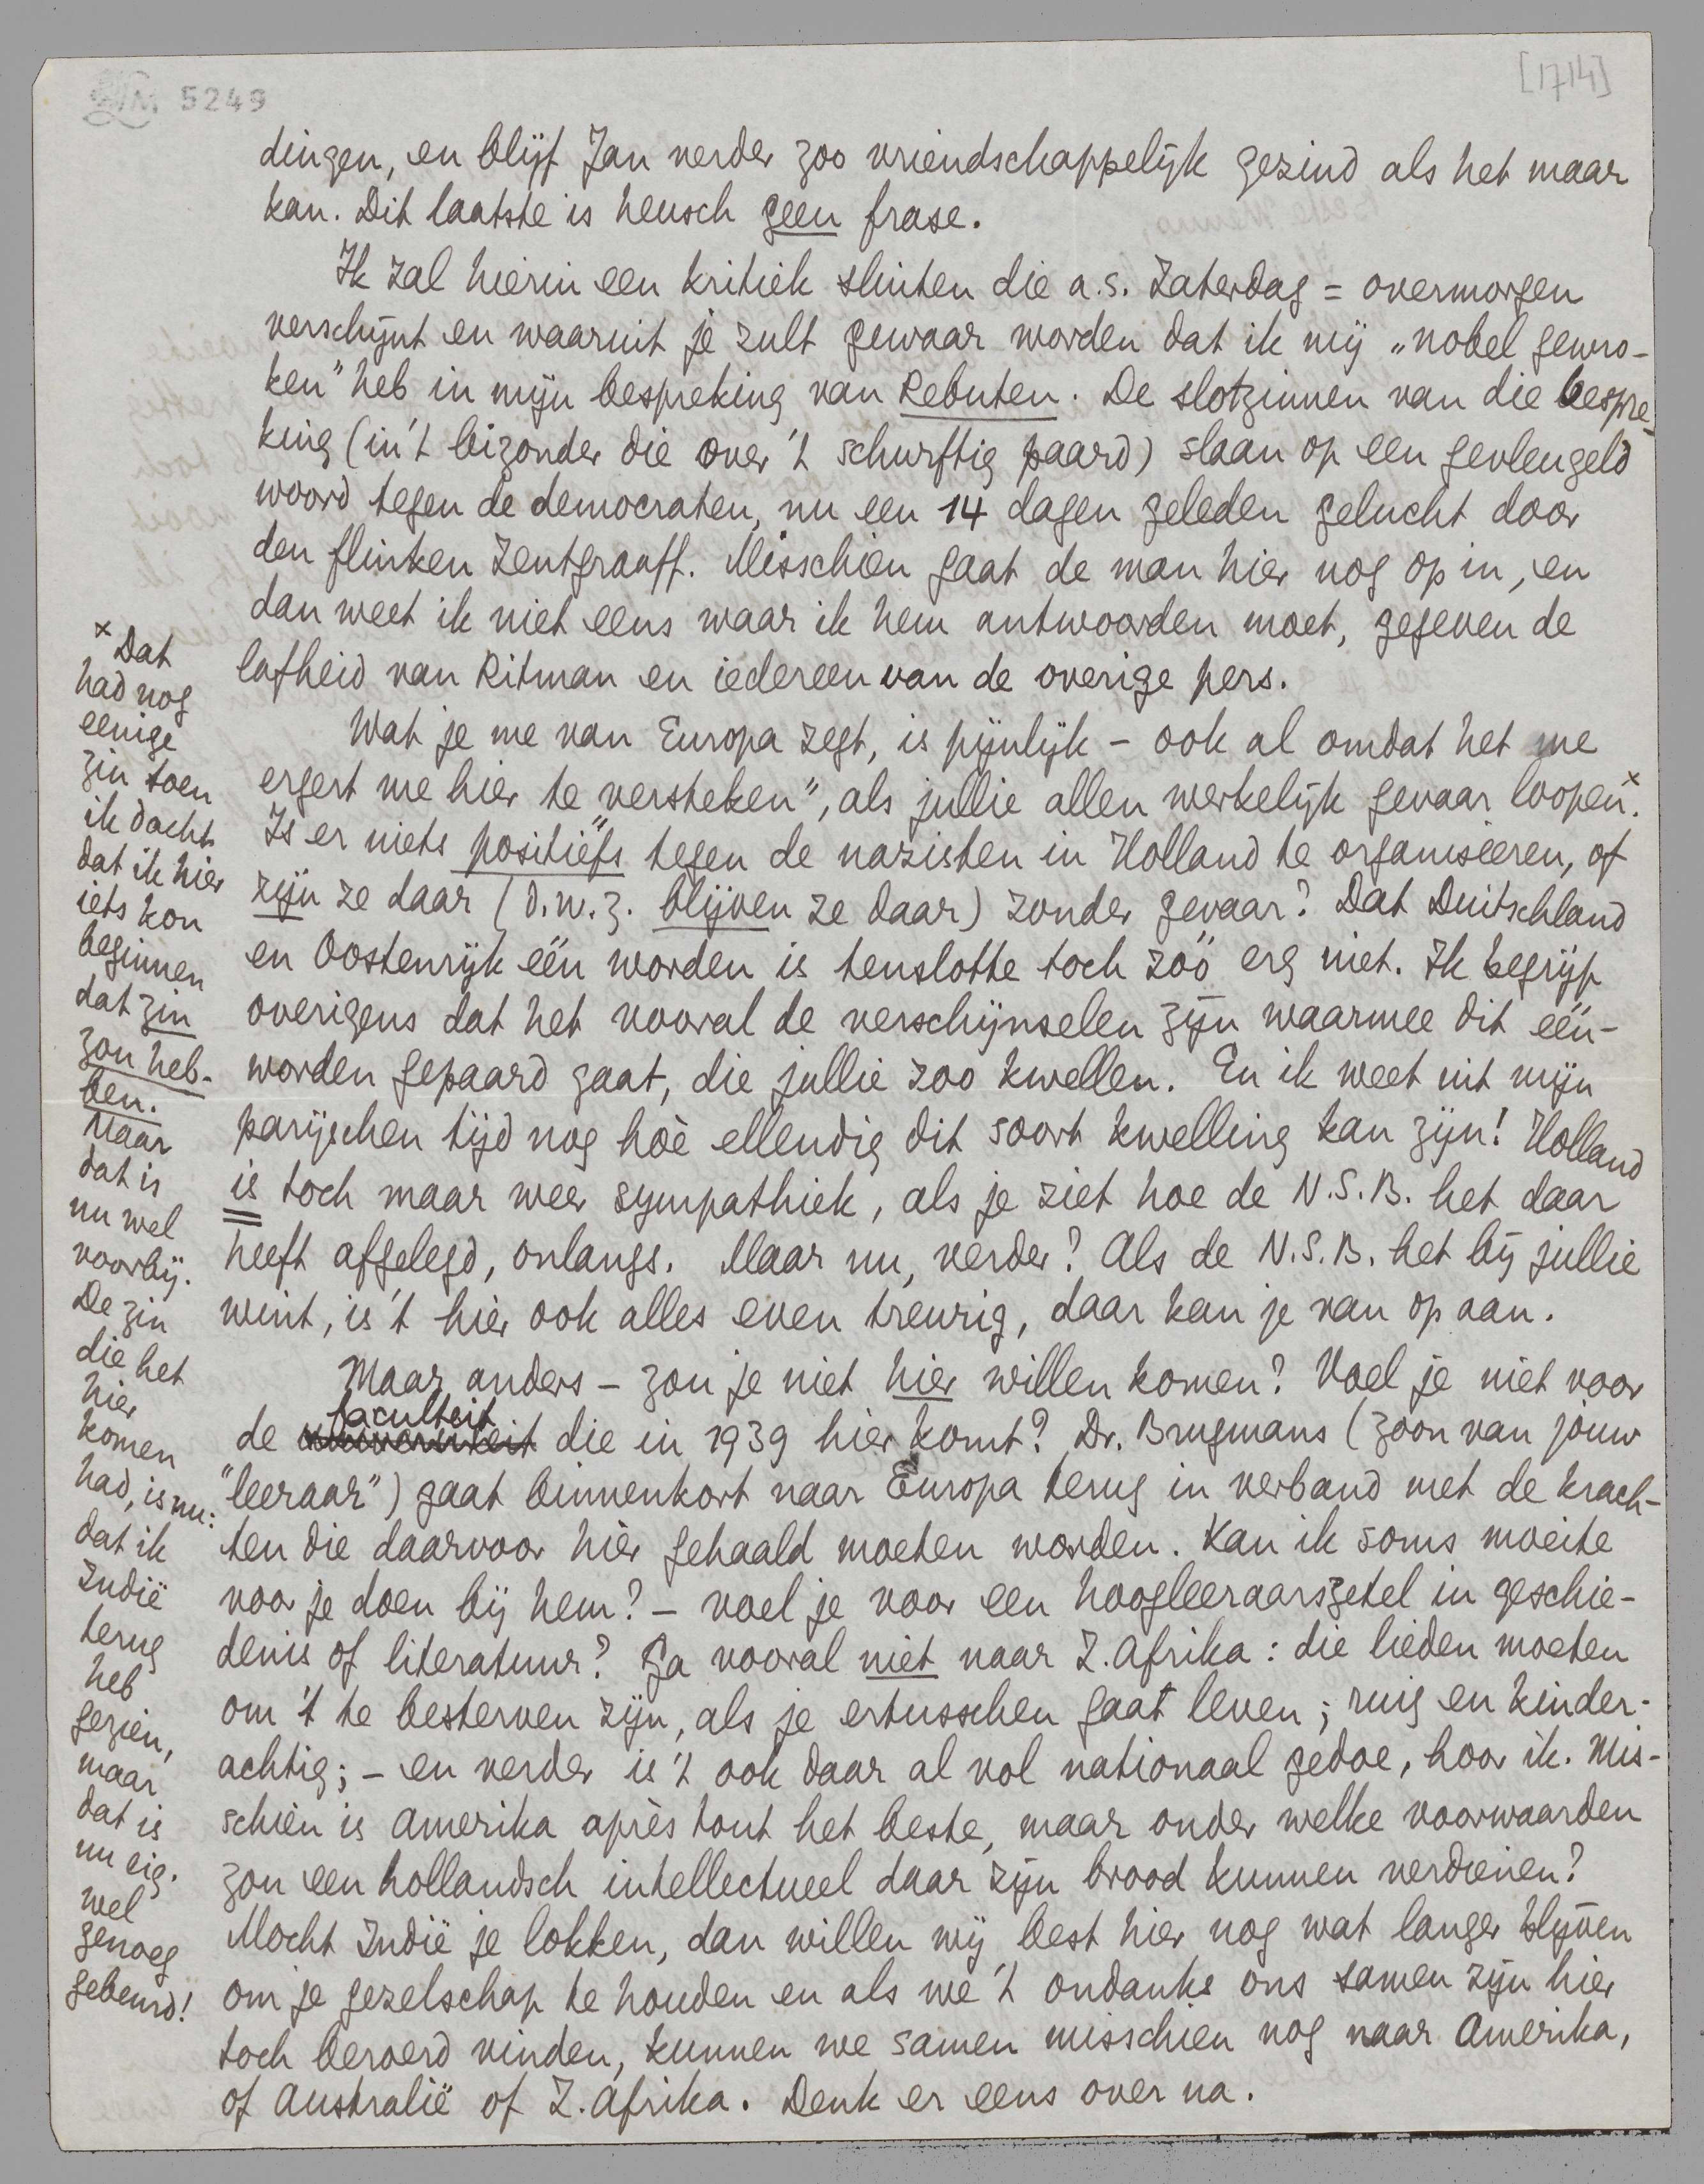 LM 5249
[1714]
dingen, en blijf Jan verder zoo vriendschappelijk gezind als het maar
kan. Dit laatste is heusch geen frase.
Ik zal hierin een kritiek sluiten die a.s. Zaterdag = overmorgen
verschijnt en waaruit je zult gewaar worden dat ik mij „nobel gewro-
ken" heb in mijn bespreking van Rebuten. De slotzinnen van die bespre-
king (in 't bizonder die over 't schurftig paard) slaan op een gevleugeld
woord tegen de democraten, nu een 14 dagen geleden gelucht door
den flinken Zentgraaff. Misschien gaat de man hier nog op in, en
dan weet ik niet eens waar ik hem antwoorden moet, gegeven de
lafheid van Ritman en iedereen van de overige pers.
Wat je me van Europa zegt, is pijnlijk – ook al omdat het me
ergert me hier te „versteken", als jullie allen werkelijk gevaar loopen x.
Is er niets positiefs tegen de nazisten in Holland te organiseeren, of
zijn ze daar (d.w.z. blijven ze daar) zonder gevaar? Dat Duitschland
en Oostenrijk één worden is tenslotte toch zóó erg niet. Ik begrijp
overigens dat het vooral de verschijnselen zijn waarmee dit één-
worden gepaard gaat, die jullie zoo kwellen. En ik weet uit mijn
parijschen tijd nog hoè ellendig dit soort kwelling kan zijn! Holland
is toch maar weer sympathiek, als je ziet hoe de N.S.B. het daar
heeft afgelegd, onlangs. Maar nu, verder? Als de N.S.B. het bij jullie
wint, is 't hier ook alles even treurig, daar kan je van op aan.
Maar anders – zou je niet hier willen komen? Voel je niet voor
faculteit
de universiteit die in 1939 hier komt? Dr. Brugmans (zoon van jouw
"leeraar") gaat binnenkort naar Europa terug in verband met de krach-
ten die daarvoor hier gehaald moeten worden. Kan ik soms moeite
voor je doen bij hem? – voel je voor een hoogleeraarszetel in geschie-
denis of literatuur? Ga vooral niet naar Z. Afrika: die lieden moeten
om 't te besterven zijn, als je ertusschen gaat leven; ruig en kinder-
achtig; – en verder is 't ook daar al vol nationaal gedoe, hoor ik. Mis-
schien is Amerika après tout het beste, maar onder welke voorwaarden
zou een hollandsch intellectueel daar zijn brood kunnen verdienen?
Mocht Indië je lokken, dan willen wij best hier nog wat langer blijven
om je gezelschap te houden en als we 't ondanks ons samen zijn hier
toch beroerd vinden, kunnen we samen misschien nog naar Amerika,
of Australië of Z. Afrika. Denk er eens over na.
x Dat
had nog
eenige
zin toen
ik dacht
dat ik hier
iets kon
beginnen
dat zin
zou heb-
ben.
Maar
dat is
nu wel
voorbij.
De zin
die het
hier
komen
had, is nu:
dat ik
Indië
terug
heb
gezien,
maar
dat is
nu eig.
wel
genoeg
gebeurd!